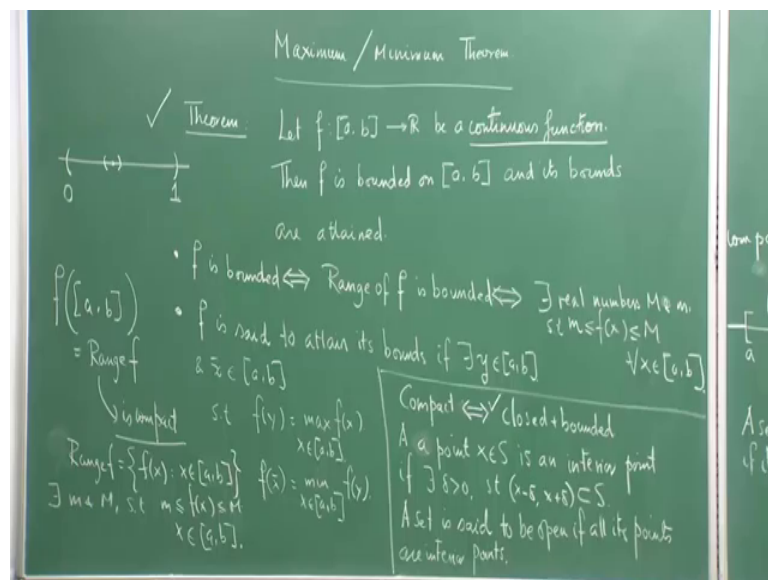 Maximum / Minimum Theorem
✓ Theorem: Let f : [a, b] → R be a continuous function.
Then f is bounded on [a, b] and its bounds
are attained.
( (·) )
0 1
• f is bounded ⇔ Range of f is bounded ⇔ ∃ real numbers M & m.
s.t m ≤ f(x) ≤ M
∀ x ∈ [a, b].
• f is said to attain its bounds if ∃ y ∈ [a, b]
& x̄ ∈ [a, b]
s.t f(y) = max f(x)
x ∈ [a, b]
f(x̄) = min f(y).
x ∈ [a, b]
f([a, b])
= Range f
is compact
Range f = {f(x) : x ∈ [a, b]}
∃ m & M, s.t m ≤ f(x) ≤ M
x ∈ [a, b].
Compact ⇔ ✓ closed + bounded
A a point x ∈ S is an interior point
if ∃ δ>0, st (x-δ, x+δ) ⊂ S.
A set is said to be open if all its points
are interior points.
[
a
A se
if i